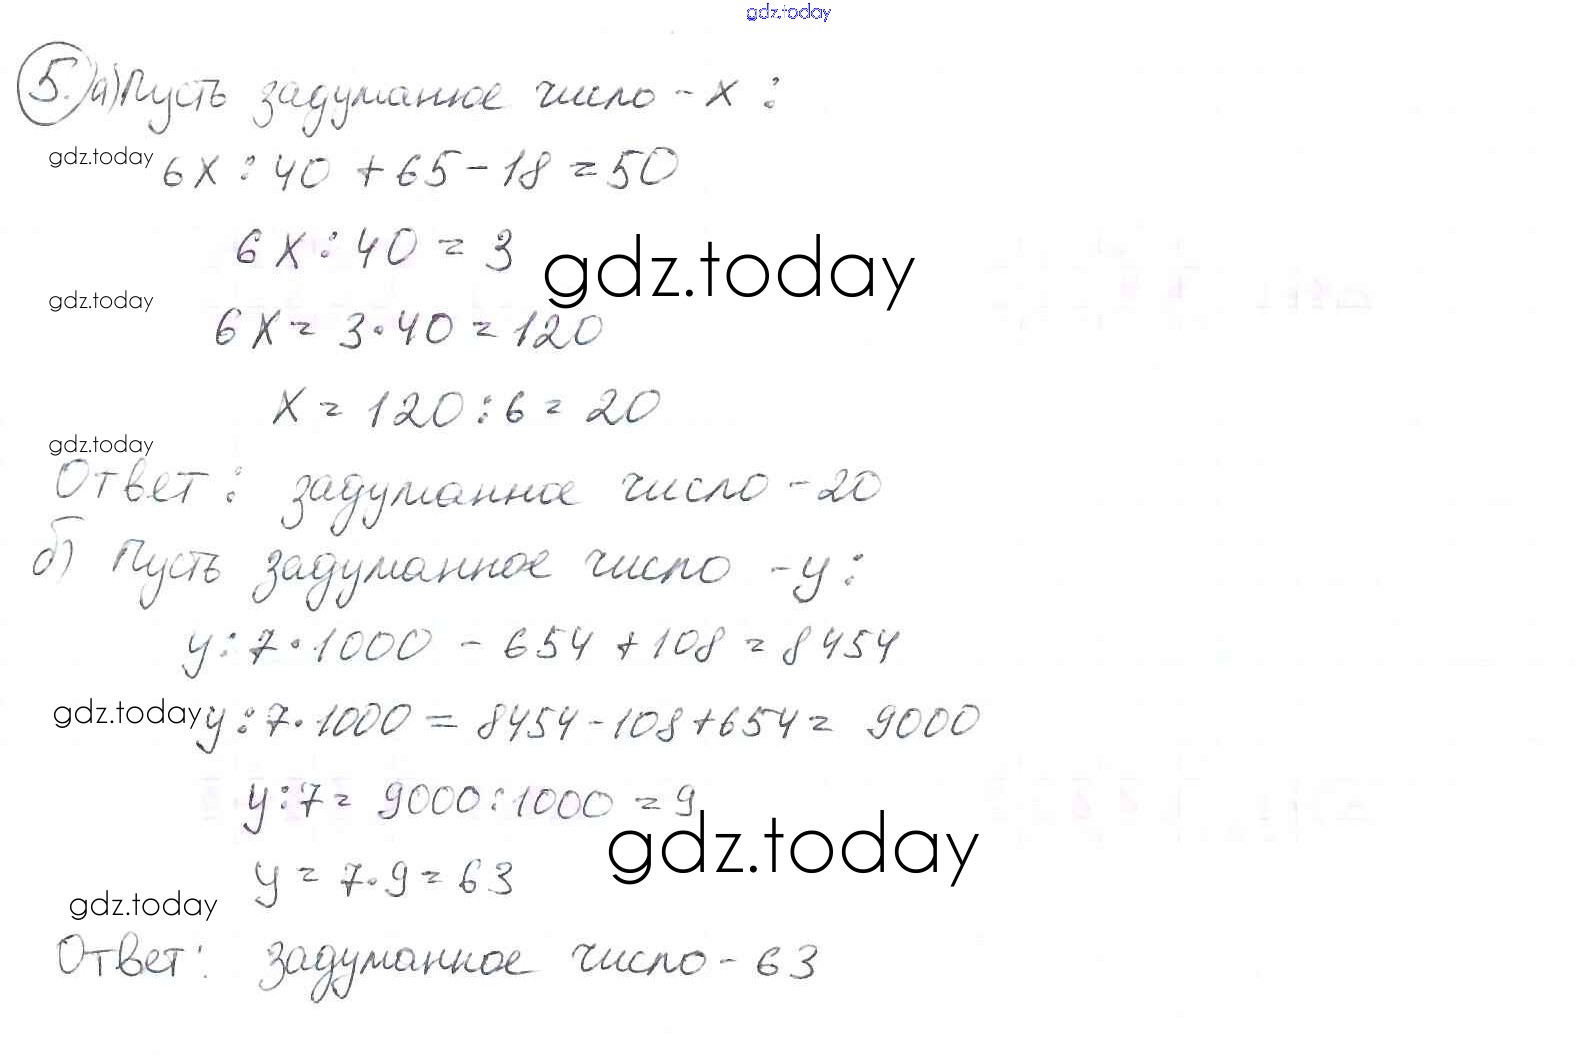 gdz.today
5. а) Пусть задуманное число - x:
gdz.today
6x : 40 + 65 - 18 = 50
6x : 40 = 3
gdz.today
gdz.today
6x = 3·40 = 120
x = 120 : 6 = 20
gdz.today
Ответ: задуманное число - 20
б) Пусть задуманное число - y:
y : 7·1000 - 654 + 108 = 8454
gdz.today
y : 7·1000 = 8454 - 108 + 654 = 9000
y : 7 = 9000 : 1000 = 9
gdz.today
y = 7·9 = 63
gdz.today
Ответ: задуманное число - 63